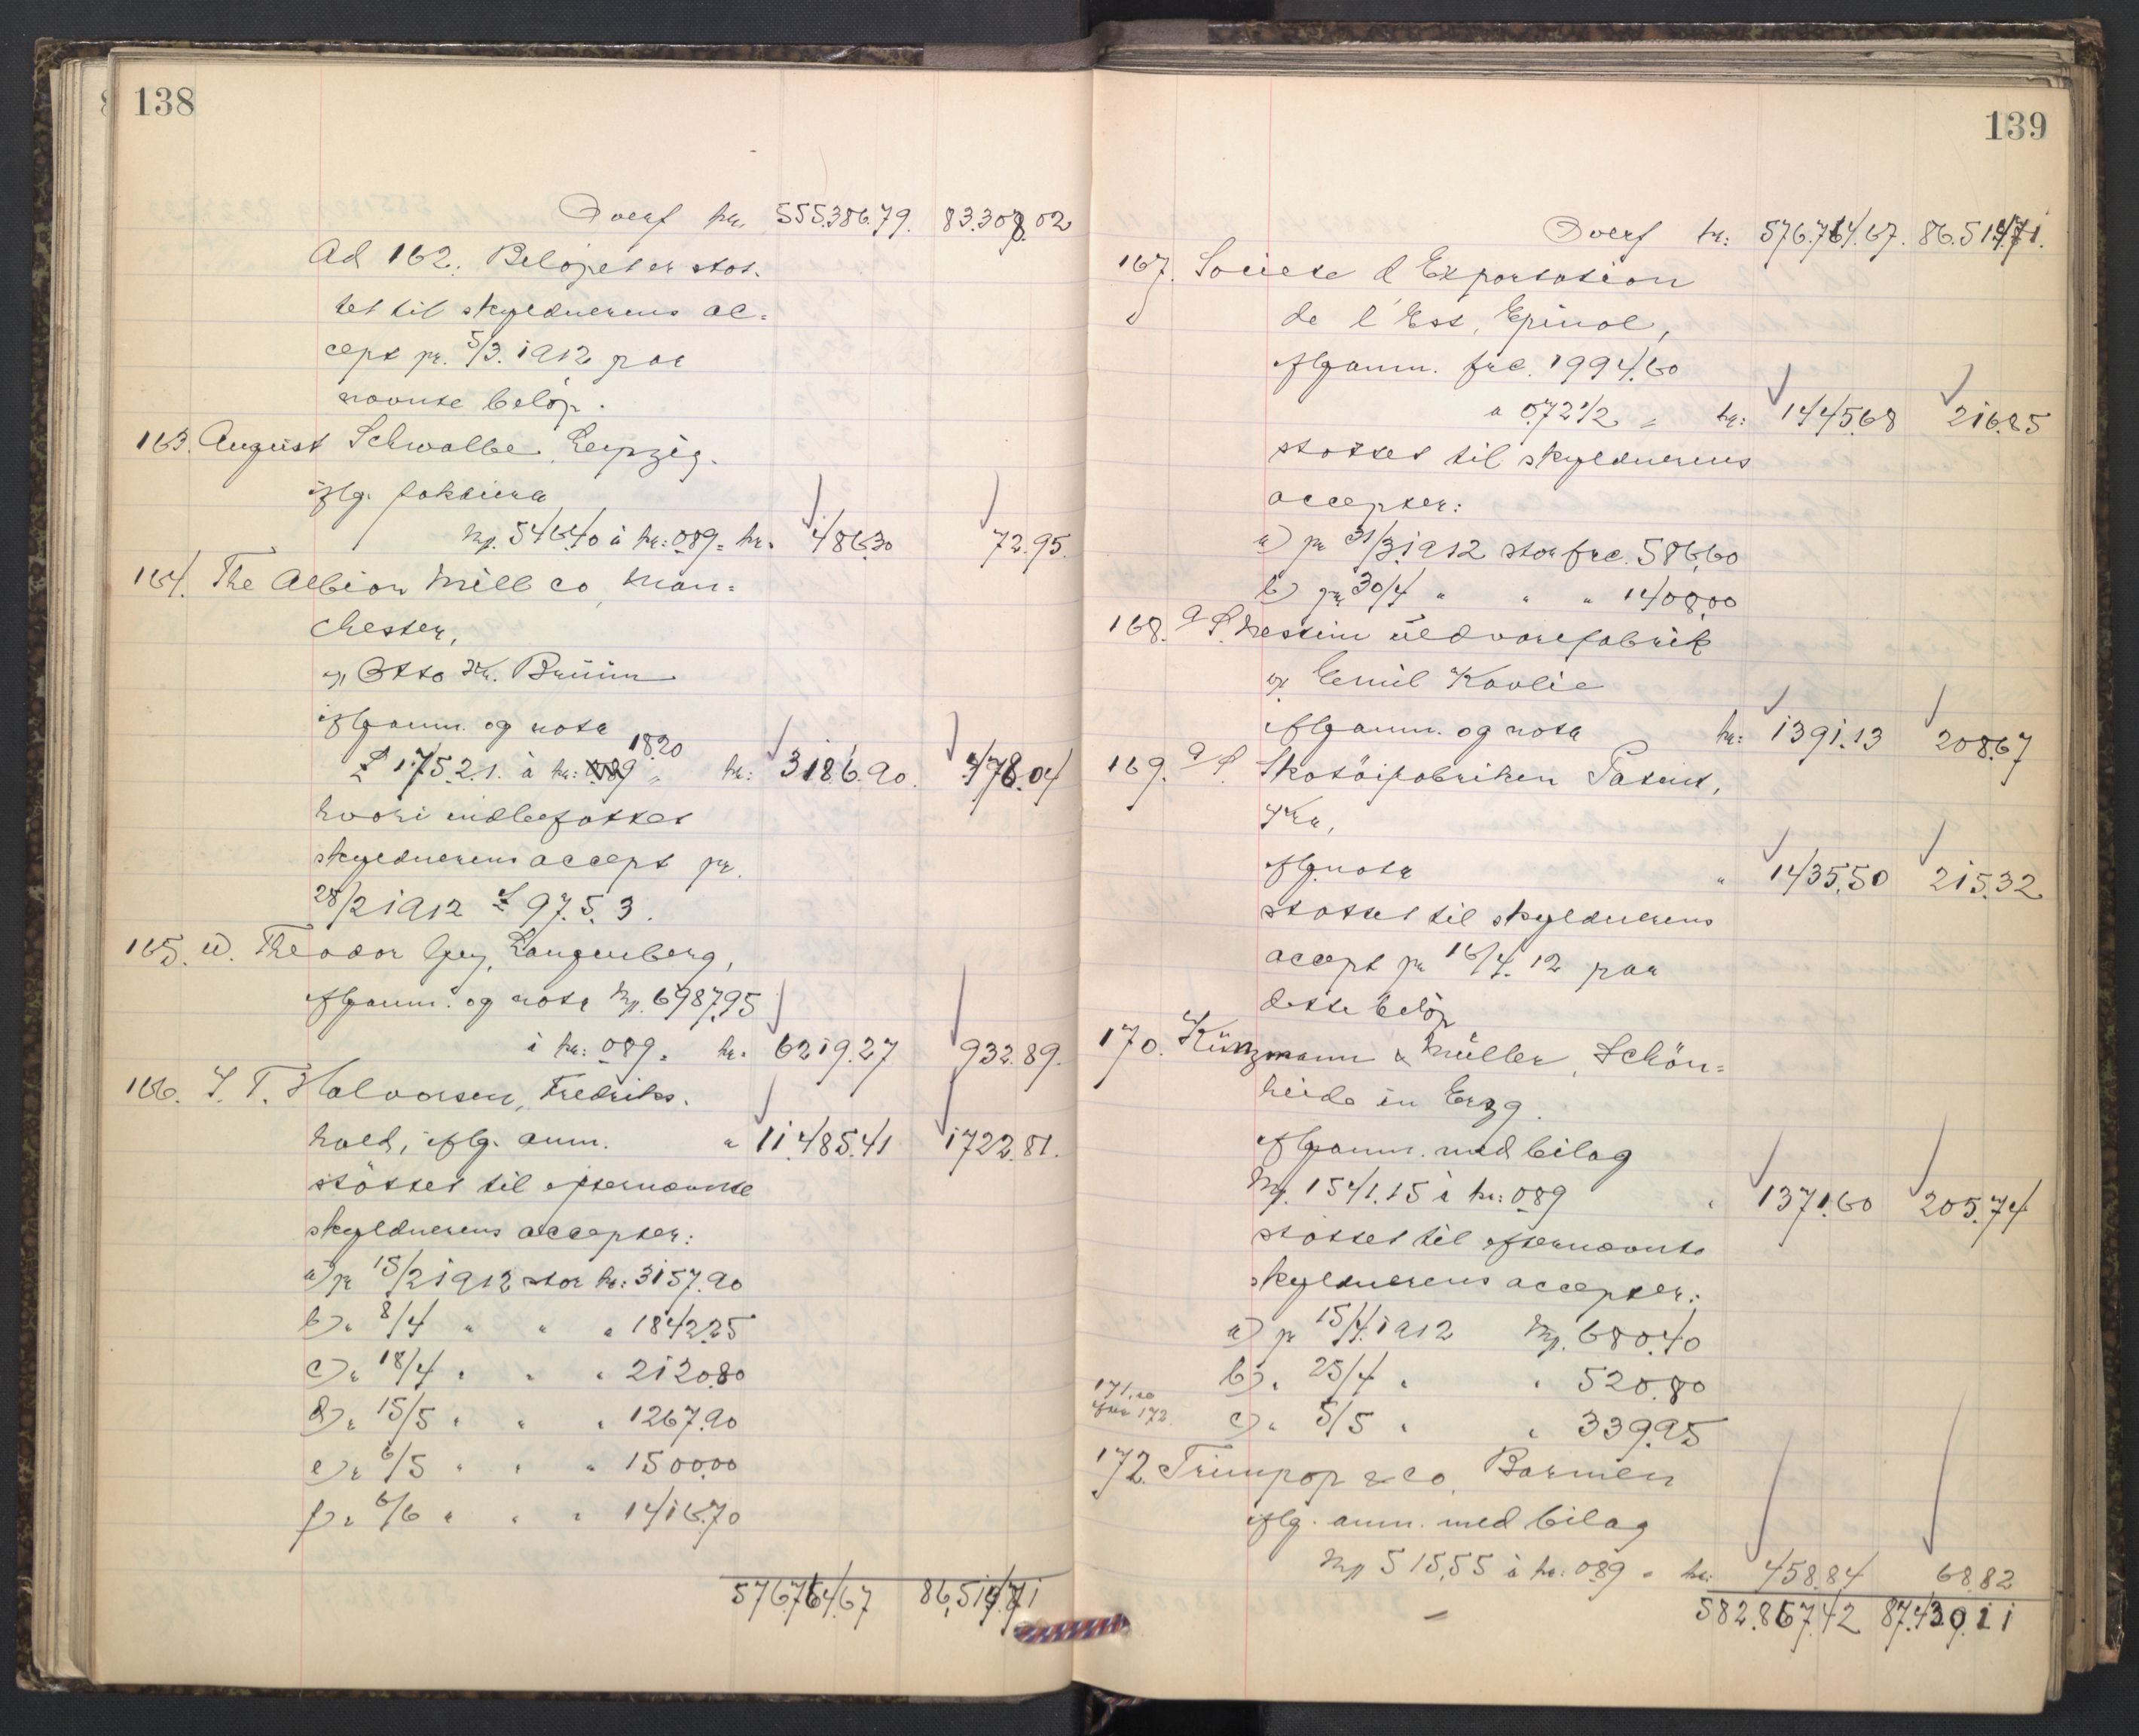 138
Overf kr. 555.386.79. 83.307.02
Ad 162: Beløpet er støt-
tet til skyldnerens ac-
cept pr. 5/3. 1912 paa
nævnte beløp.
163. August Schwalbe, Leipzig.
iflg. faktura
Mk. 546.40 à kr: 089 = kr. 486.30 72.95.
164. The Albion Mill Co, Man-
chester,
v/ Otto Kr. Bruun
iflg anm. og nota
18.20
£ 175.2.1. à kr: 089 „ kr: 3186.90. 478.04
hvori indbefattet
skyldnerens accept pr.
28/2 1912 £ 97.5.3.
165. W. Theodor Gey, Langenberg,
iflg anm. og nota Mk. 6987.95
à kr: 089. kr. 6219.27 932.89.
166. T. Halvorsen, Fredriks-
hald, iflg. anm. " 11.485.41 1722.81.
støttet til efternævnte
skyldnerens accepter:
a) pr 15/2 1912 stor kr: 3157.90
b) " 8/4 " " " 1842.25
c) " 18/4 " " " 2120.80
d) " 15/5 " " " 1267.90
e) " 6/5 " " " 1500.00
f) " 6/6 " " " 1416.70
576.764.67 86.514.71
139
Overf kr: 576.764.67. 86.514.71.
167. Societe d'Exportation
de l'Est, Epinal,
iflg anm. frc. 1994.60
a 0.72 1/2 „ kr: 1445.68 216.85
støttet til skyldnerens
accepter:
a) pr 31/3 1912 stor frc. 586.60
b) pr 30/4 " " " 1408.00
168. A/S. Nesttun uldvarefabrik
v/ Emil Kavlie
iflg anm. og nota kr: 1391.13 208.67
169. A/S. Skotøifabriken Patent,
Kra,
iflg nota " 1435.50 215.32
støttet til skyldnerens
accept pr 16/4. 12 paa
dette beløp
170. Künzmann & Müller, Schön-
heide in Erzg.
iflg anm. med bilag
Mk. 1541.15 à kr: 089 " 1371.60 205.74
støttet til efternævnte
skyldnerens accepter:
a) pr 15/4. 1912 Mk. 680.40
b) " 25/4 " " 520.80
171. se
efter 172.
c) " 5/5 " " 339.95
172. Trimpop & Co, Barmen
iflg. anm. med bilag
Mk 515.55 à kr: 089 " kr: 458.84 68.82
582.867.42 87.430.11